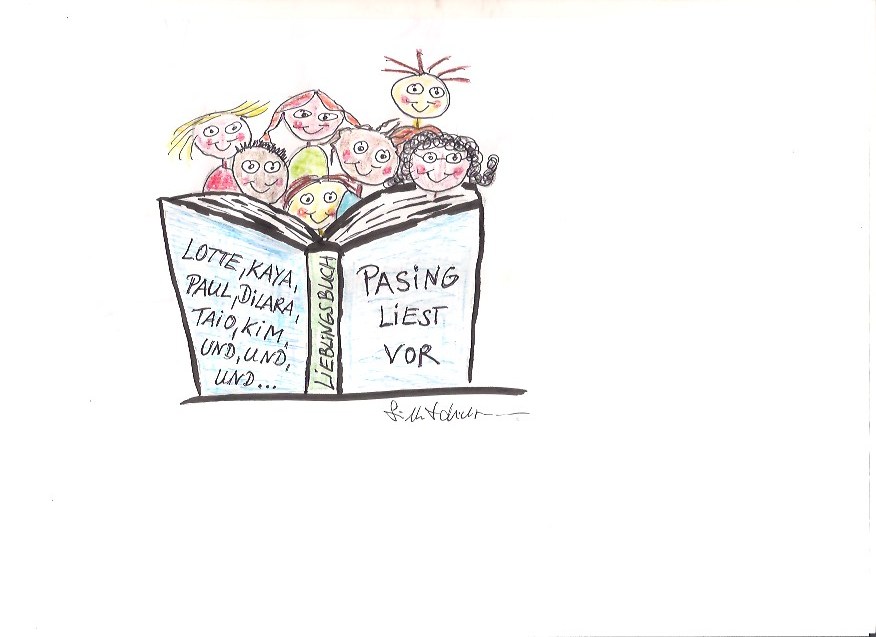 LOTTE, KAYA,
PAUL, DiLARA,
TAiO, KiM,
UND, UND,
UND...
LiEBLiNGSBUCH
PASiNG
LiEST
VOR